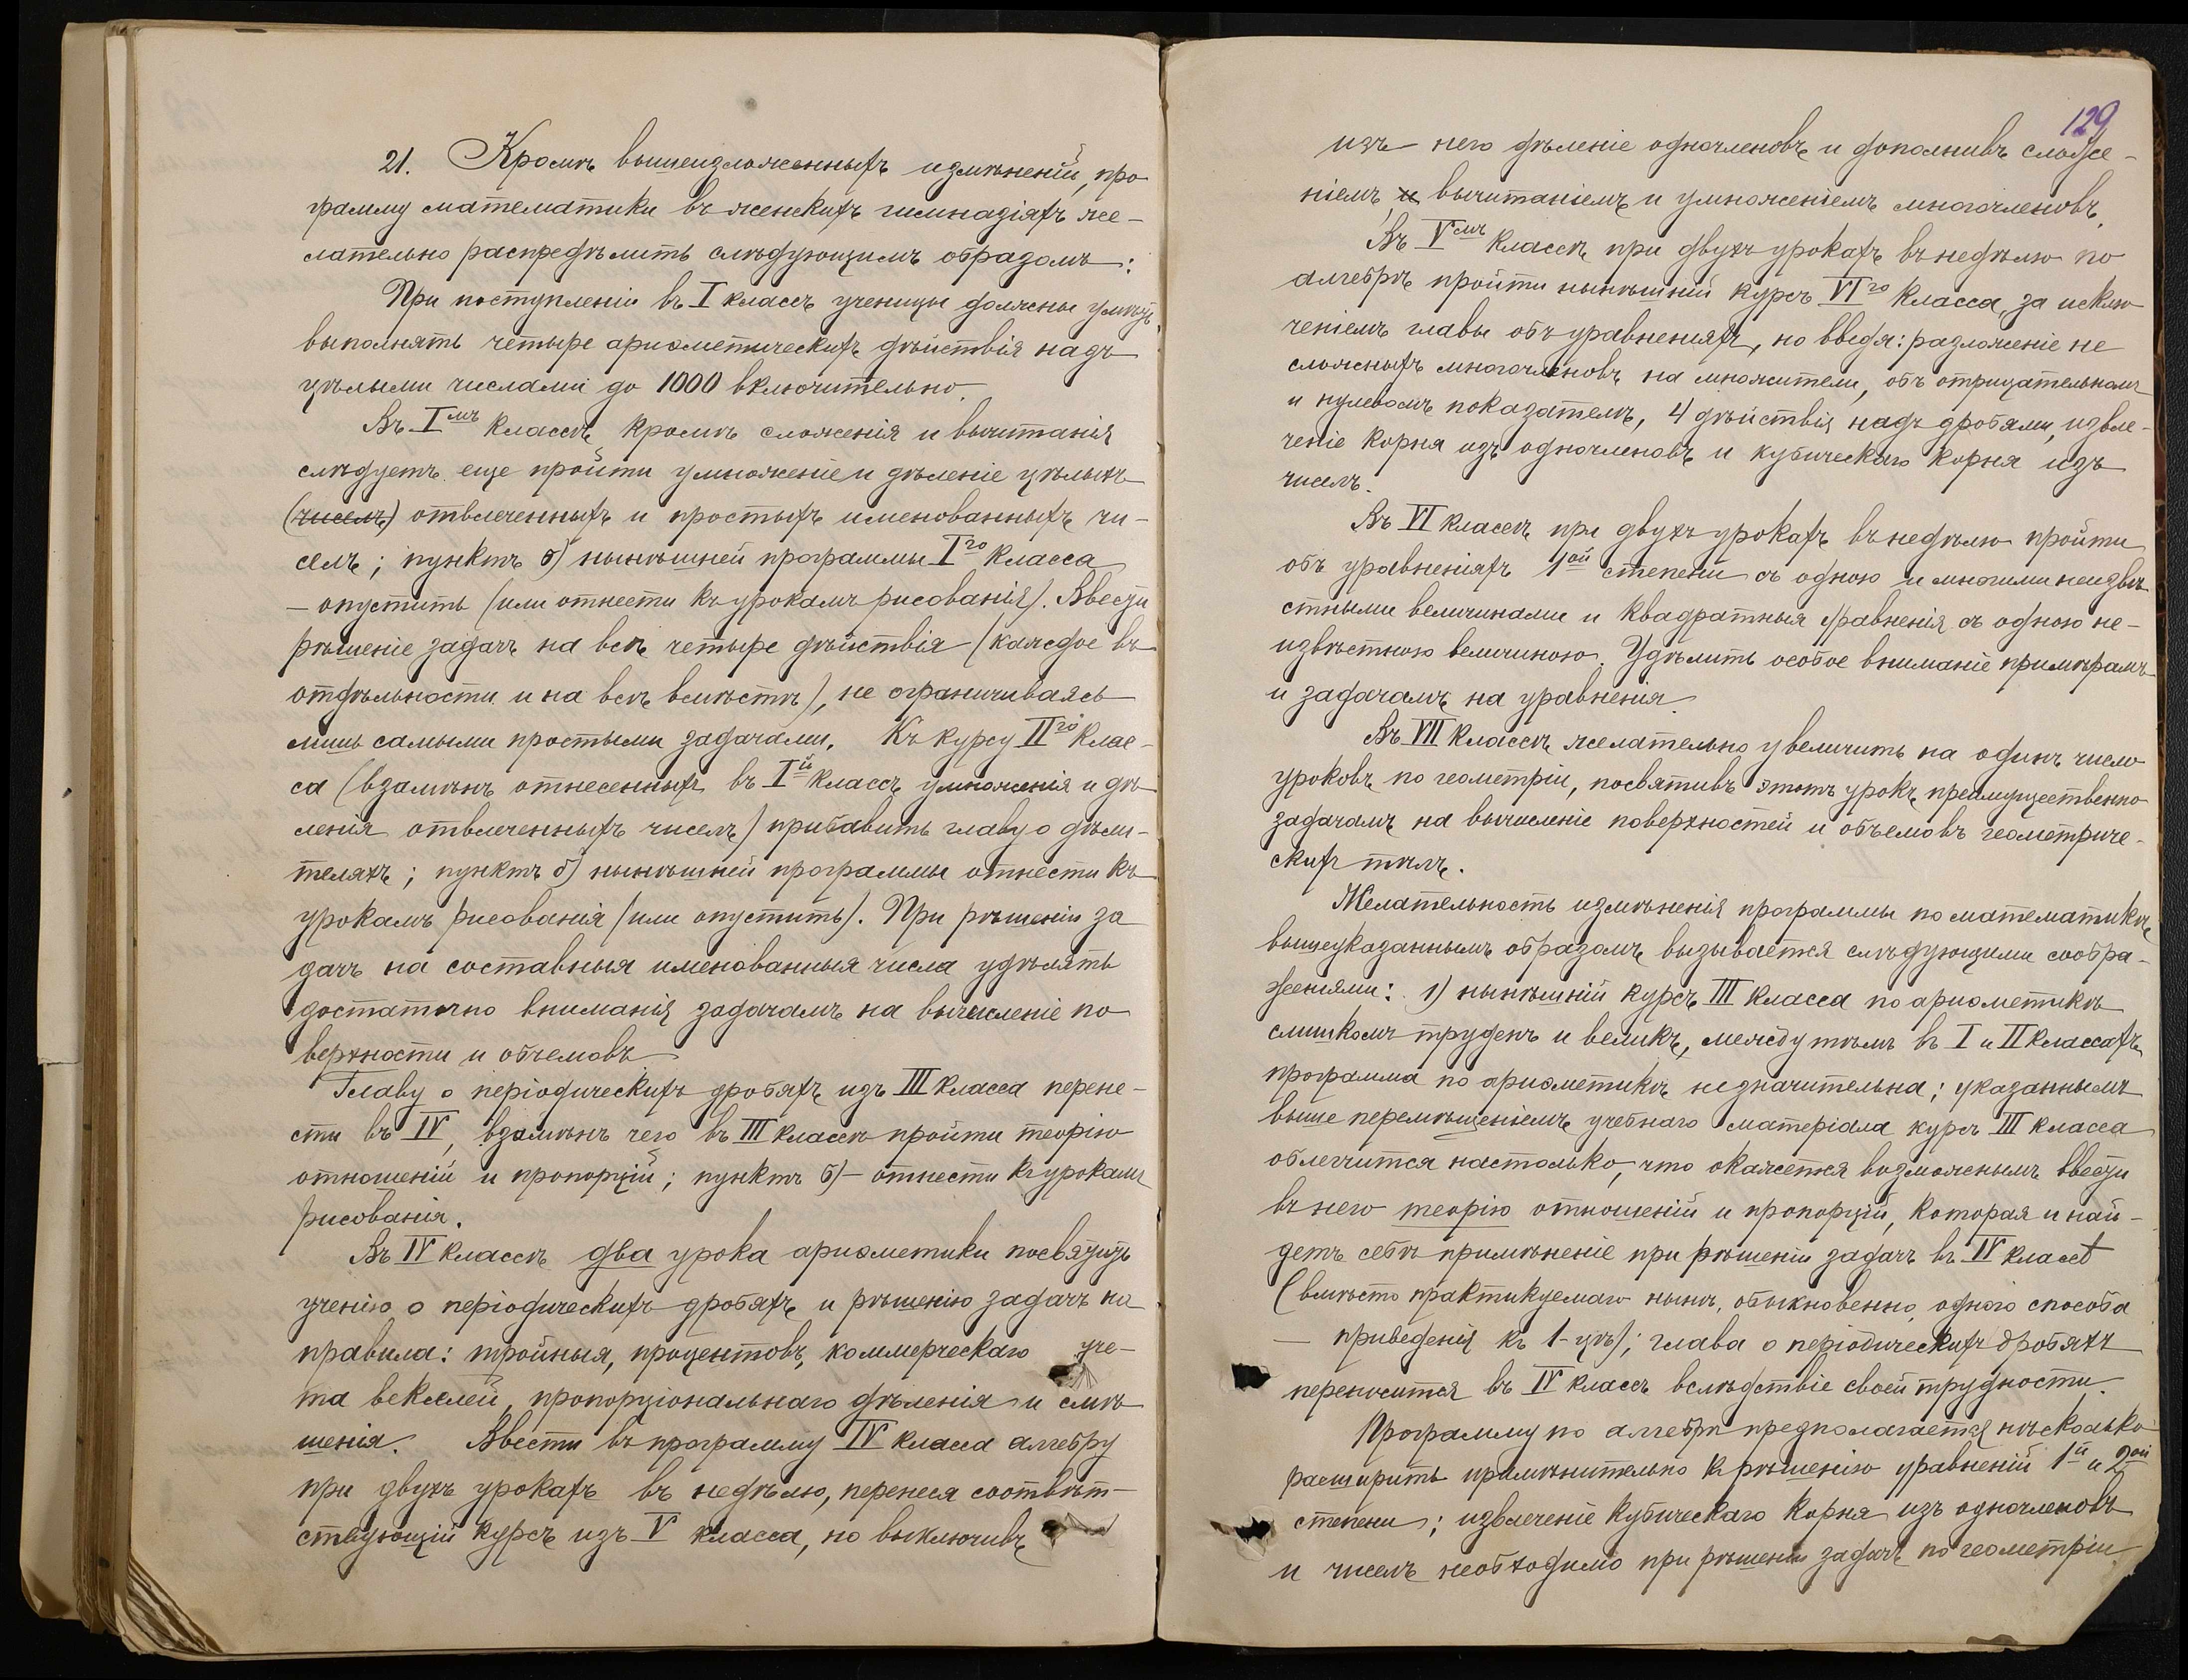 21. Кромѣ вышеизложенныхъ измѣненій, про
грамму математики въ женскихъ гимназіяхъ же-
лательно распредѣлить слѣдующимъ образомъ:
При поступленіи въ I классъ ученицы должны умѣть
выполнять четыре ариѳметическихъ дѣйствія надъ
цѣлыми числами до 1000 включительно.
Въ I мъ классѣ, кромѣ сложенія и вычитанія
слѣдуетъ еще пройти умноженіе и дѣленіе цѣлыхъ
(чиселъ) отвлеченныхъ и простыхъ именованныхъ чи-
селъ; пунктъ б) нынѣшней программы I го класса
— опустить (или отнести къ урокамъ рисованія). Ввести
рѣшеніе задачъ на всѣ четыре дѣйствія (каждое въ
отдѣльности и на всѣ вмѣстѣ), не ограничиваясь
лишь самыми простыми задачами. Къ курсу II го клас-
са (взамѣнъ отнесенныхъ въ I й классъ умноженія и дѣ-
ленія отвлеченныхъ чиселъ) прибавить главу о дѣли-
теляхъ; пунктъ б) нынѣшней программы отнести къ
урокамъ рисованія (или опустить). При рѣшеніи за
дачъ на составныя именованныя числа удѣлять
достаточно вниманія задачамъ на вычисленіе по
верхности и объемовъ
Главу о періодическихъ дробяхъ изъ III класса перене-
сти въ IV, взамѣнъ чего въ III классѣ пройти теорію
отношеній и пропорцій; пунктъ б) — отнести къ урокамъ
рисованія.
Въ IV классѣ два урока ариѳметики посвятить
ученію о періодическихъ дробяхъ и рѣшенію задачъ на
правила: тройныя, процентовъ, коммерческаго уче-
та векселей, пропорціональнаго дѣленія и смѣ
шенія. Ввести въ программу IV класса алгебру
при двухъ урокахъ въ недѣлю, перенеся соотвѣт-
ствующій курсъ изъ V класса, но выключивъ
129
изъ него дѣленіе одночленовъ и дополнивъ сложе-
ніемъ, и вычитаніемъ и умноженіемъ многочленовъ.
Въ V мъ классѣ при двухъ урокахъ въ недѣлю по
алгебрѣ пройти нынѣшній курсъ VI го класса, за исклю
ченіемъ главы объ уравненіяхъ, но введя: разложеніе не
сложныхъ многочленовъ на множители, объ отрицательномъ
и нулевомъ показателѣ, 4 дѣйствія надъ дробями, извле-
ченіе корня изъ одночленовъ и кубическаго корня изъ
чиселъ.
Въ VI классѣ при двухъ урокахъ въ недѣлю пройти
объ уравненіяхъ 1 ой степени съ одною и многими неизвѣ
стными величинами и квадратныя уравненія съ одною не-
извѣстною величиною. Удѣлить особое вниманіе примѣрамъ
и задачамъ на уравненія.
Въ VII классѣ желательно увеличить на одинъ число
уроковъ по геометріи, посвятивъ этотъ урокъ преимущественно
задачамъ на вычисленіе поверхностей и объемовъ геометриче-
скихъ тѣлъ.
Желательность измѣненія программы по математикѣ
вышеуказаннымъ образомъ вызывается слѣдующими сообра-
женіями: 1) нынѣшній курсъ III класса по ариѳметикѣ
слишкомъ труденъ и великъ, между тѣмъ въ I и II классахъ
программа по ариѳметикѣ незначительна; указаннымъ
выше перемѣщеніемъ учебнаго матеріала курсъ III класса
облегчится настолько, что окажется возможнымъ ввести
въ него теорію отношеній и пропорцій, которая и най-
детъ себѣ примѣненіе при рѣшеніи задачъ въ IV классѣ
(вмѣсто практикуемаго нынѣ, обыкновенно, одного способа
— приведенія къ 1-цѣ); глава о періодическихъ дробяхъ
переносится въ IV классъ вслѣдствіе своей трудности.
Программу по алгебрѣ предполагается нѣсколько
расширить примѣнительно къ рѣшенію уравненій 1 й и 2 ой
степени; извлеченіе кубическаго корня изъ одночленовъ
и чиселъ необходимо при рѣшеніи задачъ по геометріи